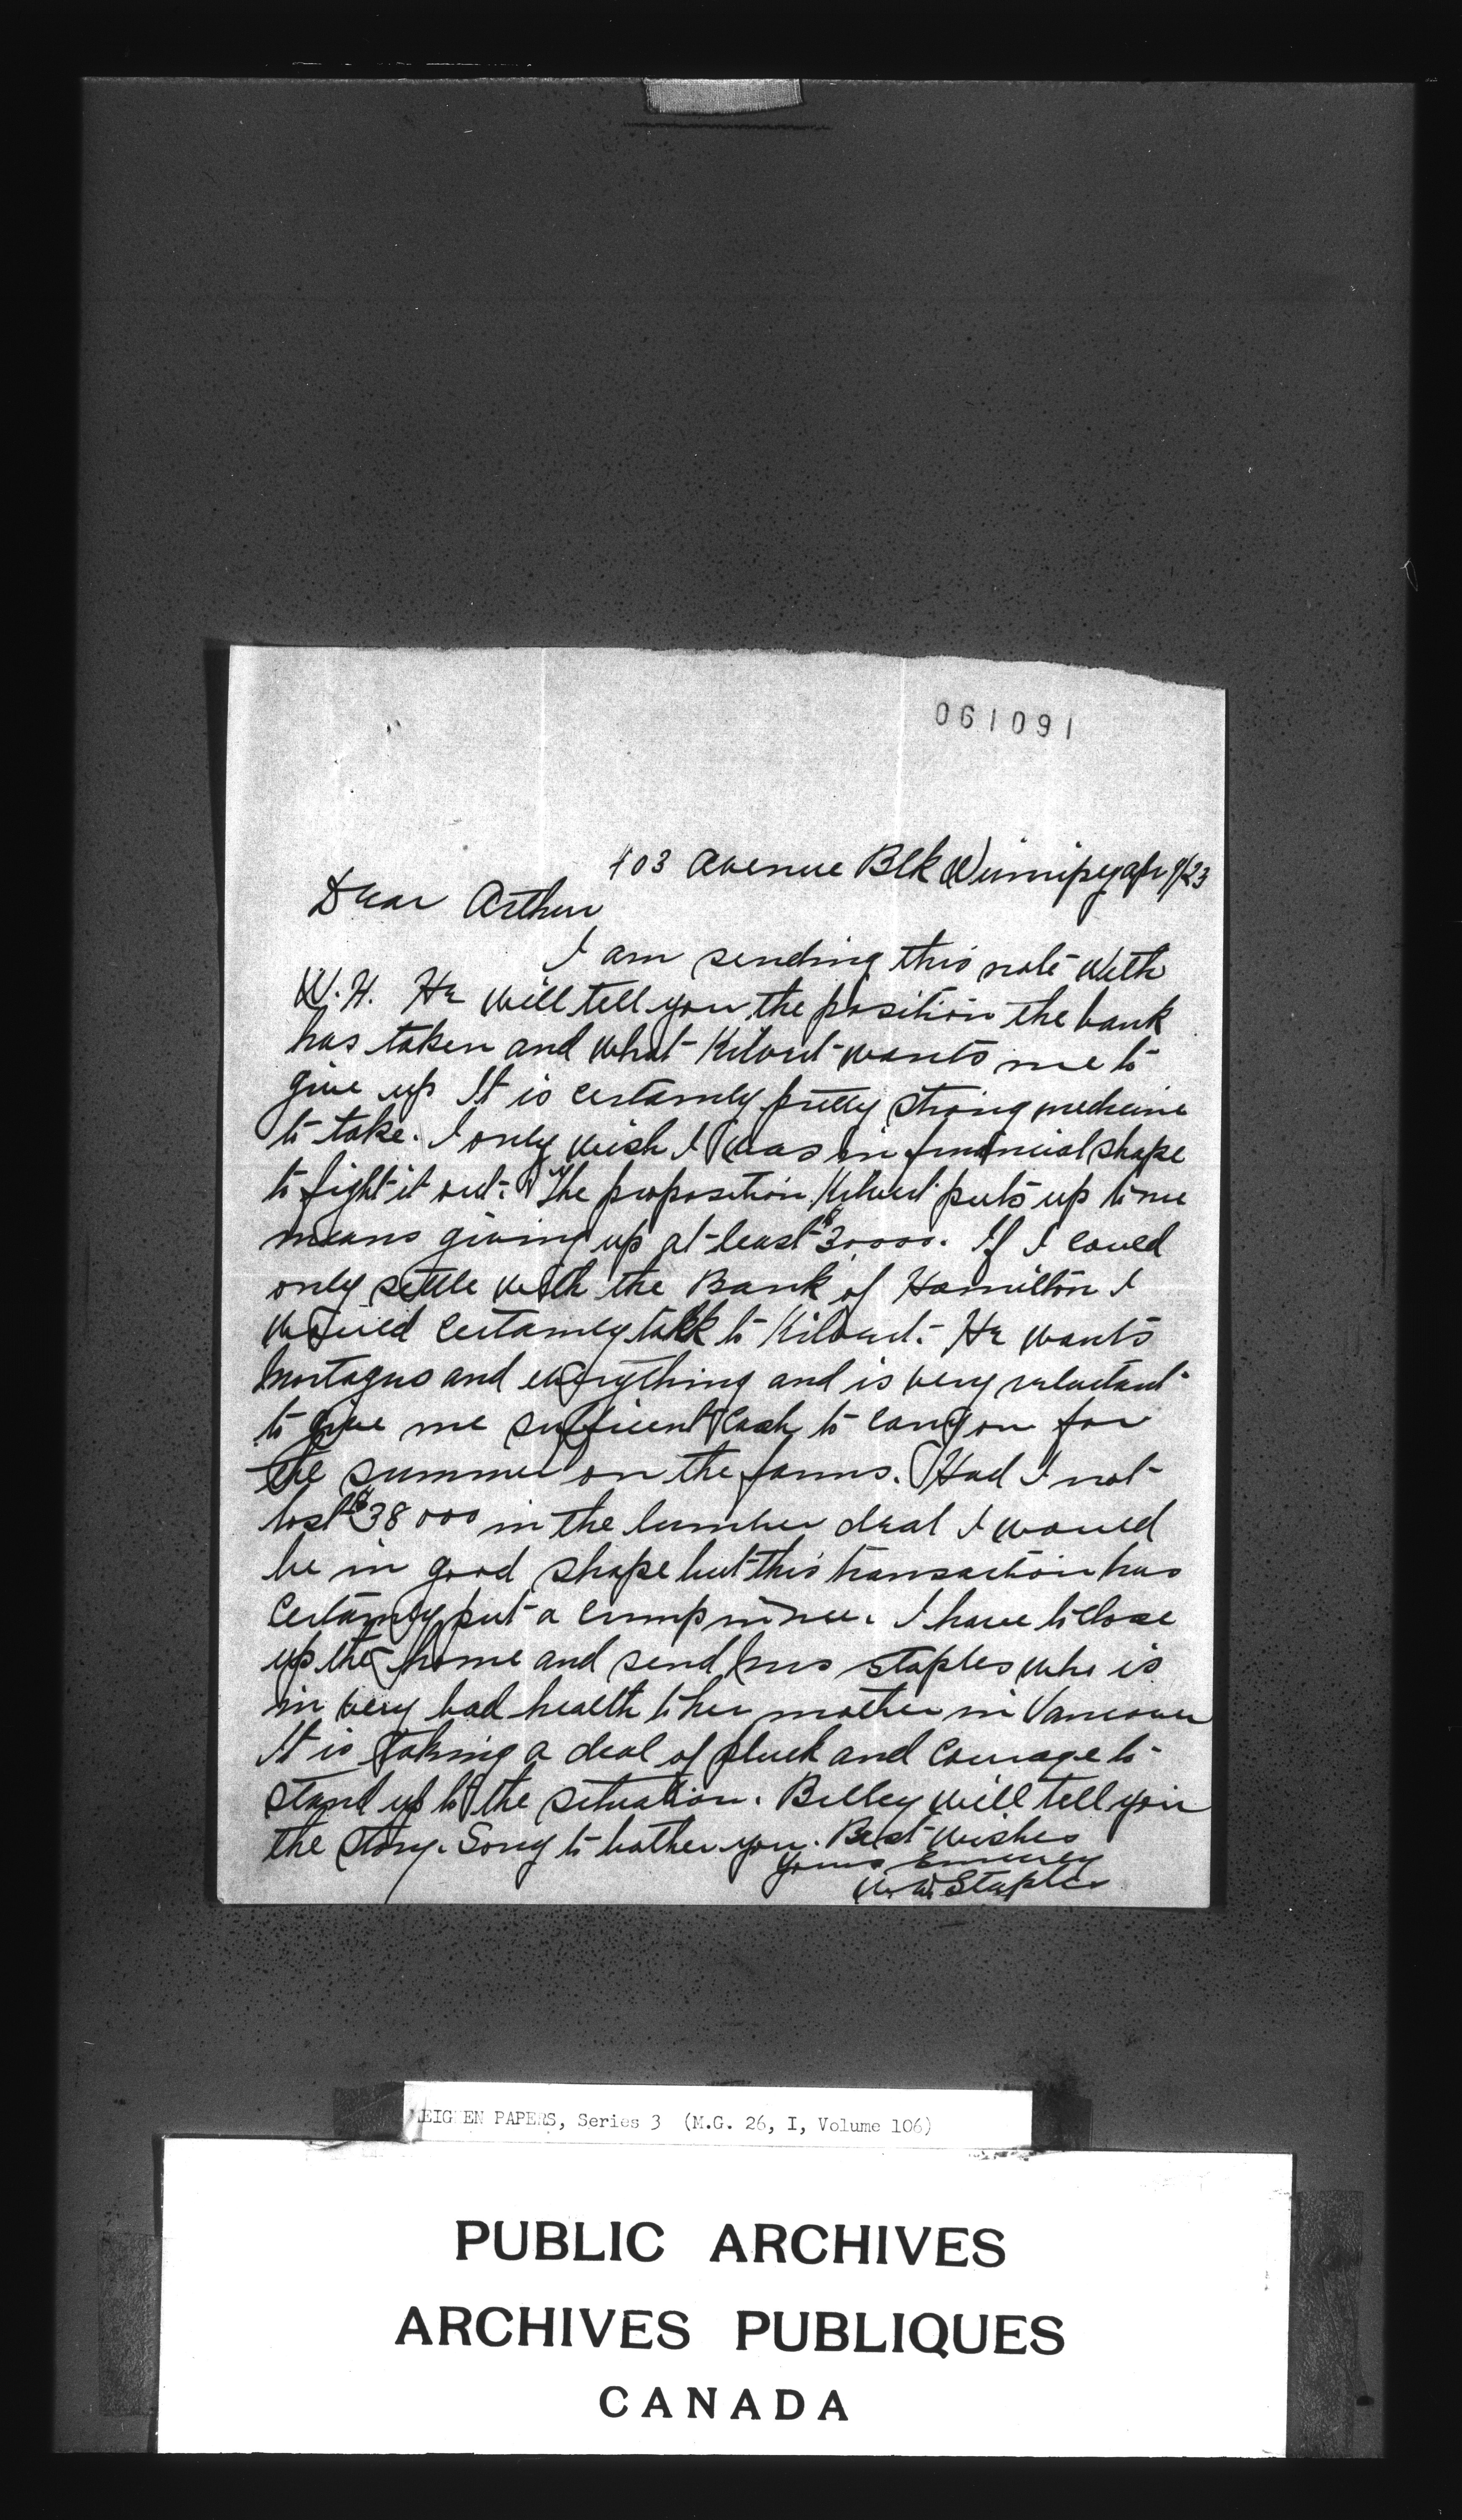 061091
403 Avenue Blk Winnipeg Apr 9/23
Dear Arthur
I am sending this note with
W.H. He will tell you the position the bank
has taken and what Kilvert wants me to
give up It is certainly pretty strong medicine
to take. I only wish I was in financial shape
to fight it out. The proposition Kilvert puts up to me
means giving up at least $30000. If I could
only settle with the Bank of Hamilton I
would certainly talk to Kilvert. He wants
Mortages and everything and is very reluctant
to give me sufficient cash to carry on for
the summer on the farms. Had I not
lost $38000 in the lumber deal I would
be in good shape but this transaction has
certainly put a crimp in me. I have to close
up the home and send Mrs Staples who is
in very bad health to her mother in Vancouver
It is taking a deal of pluck and courage to
stand up to the situation. Billey will tell you
the story. Sorry to bother you. Best wishes
Yours
W.D. Staples
MEIGHEN PAPERS, Series 3 (M.G. 26, I, Volume 106)
PUBLIC ARCHIVES
ARCHIVES PUBLIQUES
CANADA